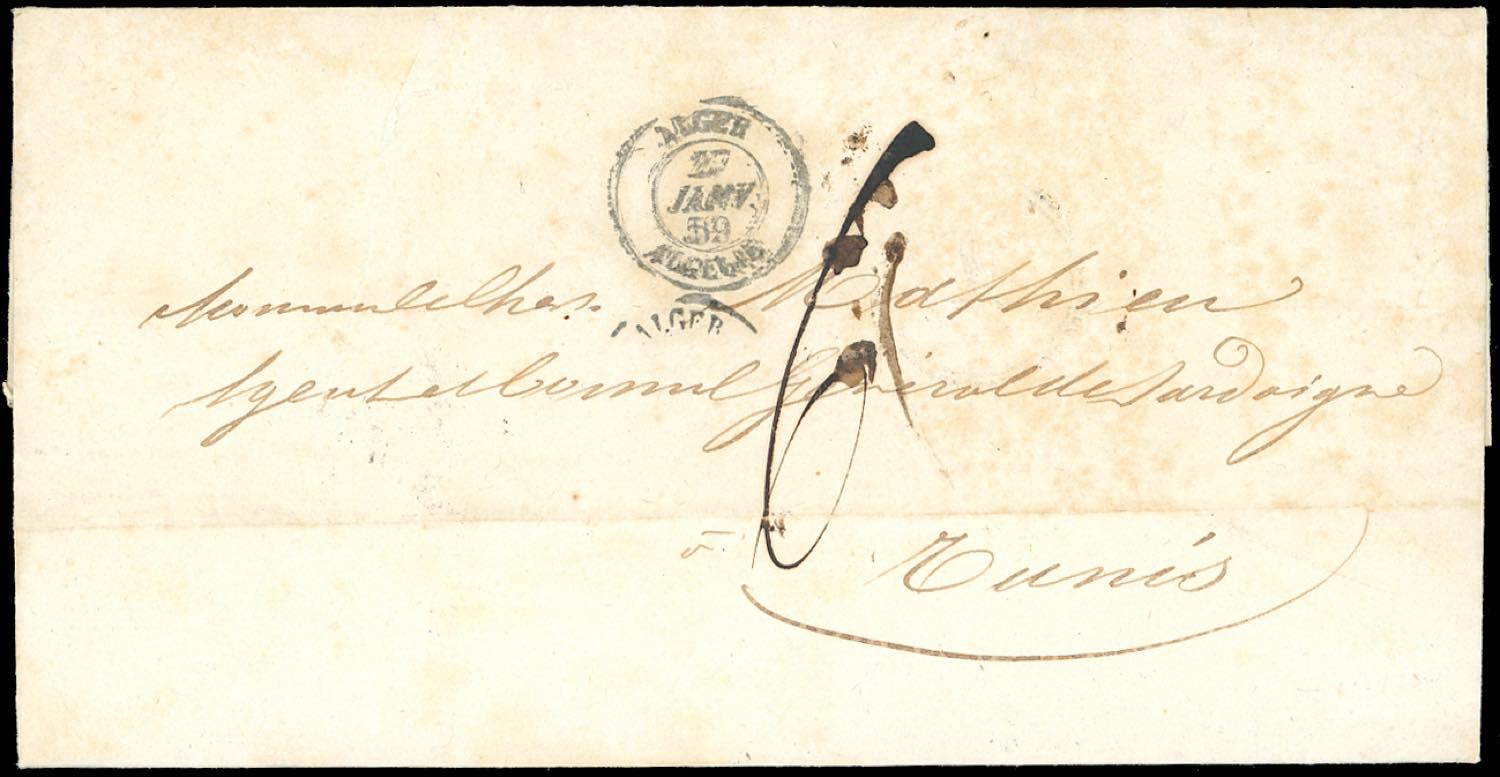 ALGER
27
JANV.
39
ALGERIE
ALGER
Monsieur le Cher. Mathieu
Agent et Consul Général de Sardaigne
à
Tunis